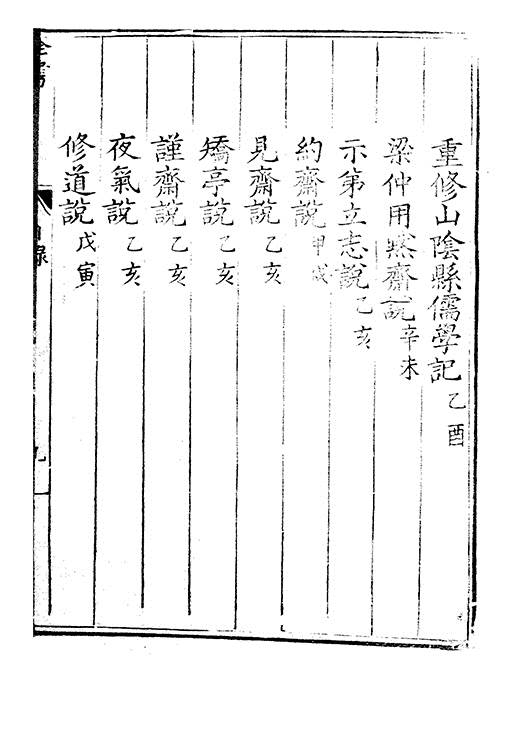 重修山陰縣儒學記乙酉
梁仲用默齋說辛未
示第立志說乙亥
約齋說甲戌
見齋說乙亥
矯亭說乙亥
謹齋說乙亥
夜氣說乙亥
修道說戊寅
目錄